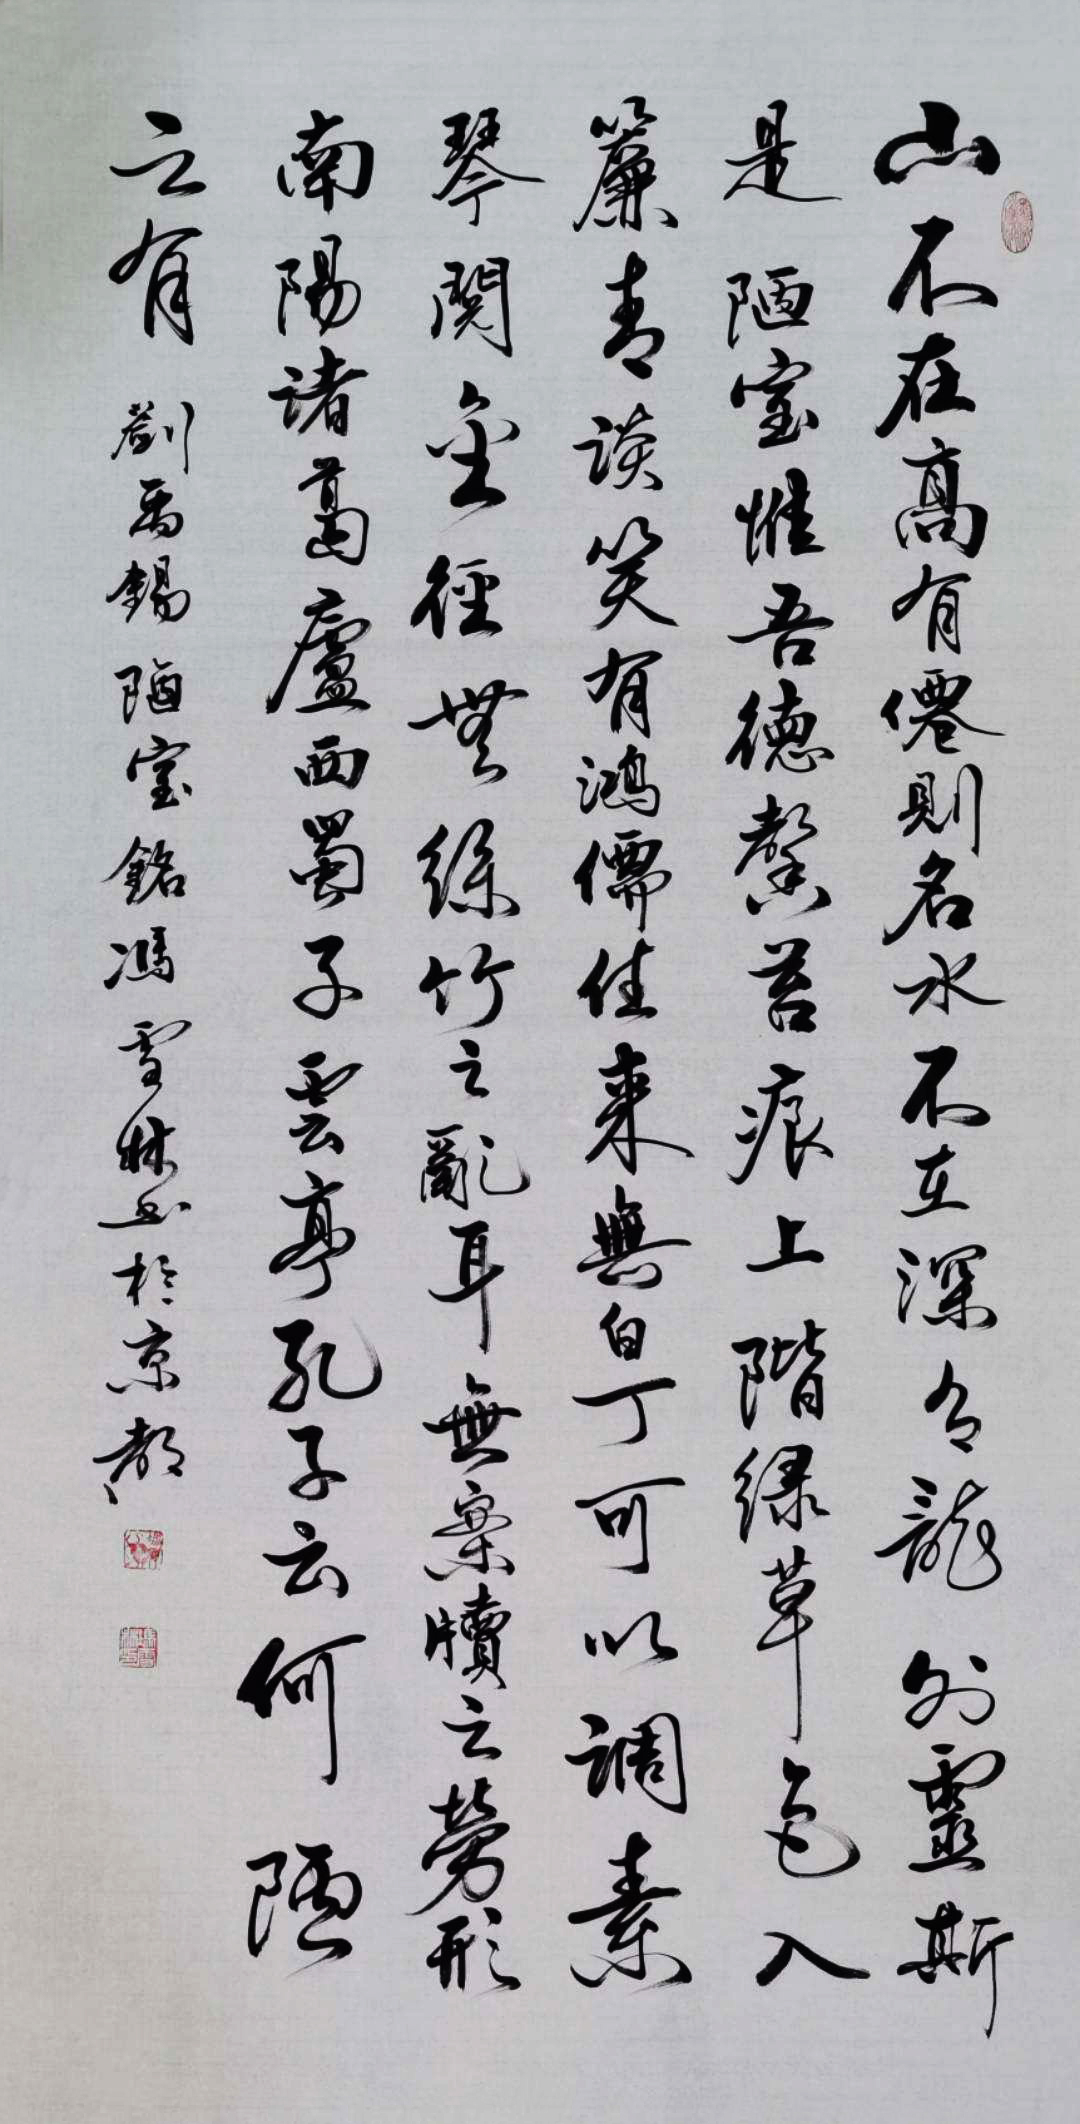 山不在高有僊則名水不在深有龍則靈斯
是陋室惟吾德馨苔痕上階绿草色入
簾青談笑有鴻儒往来無白丁可以調素
琴閱金徑無絲竹之亂耳無案牘之勞形
南陽诸葛廬西蜀子雲亭孔子云何陋
之有 劉禹錫陋室銘馮雪林书於京都